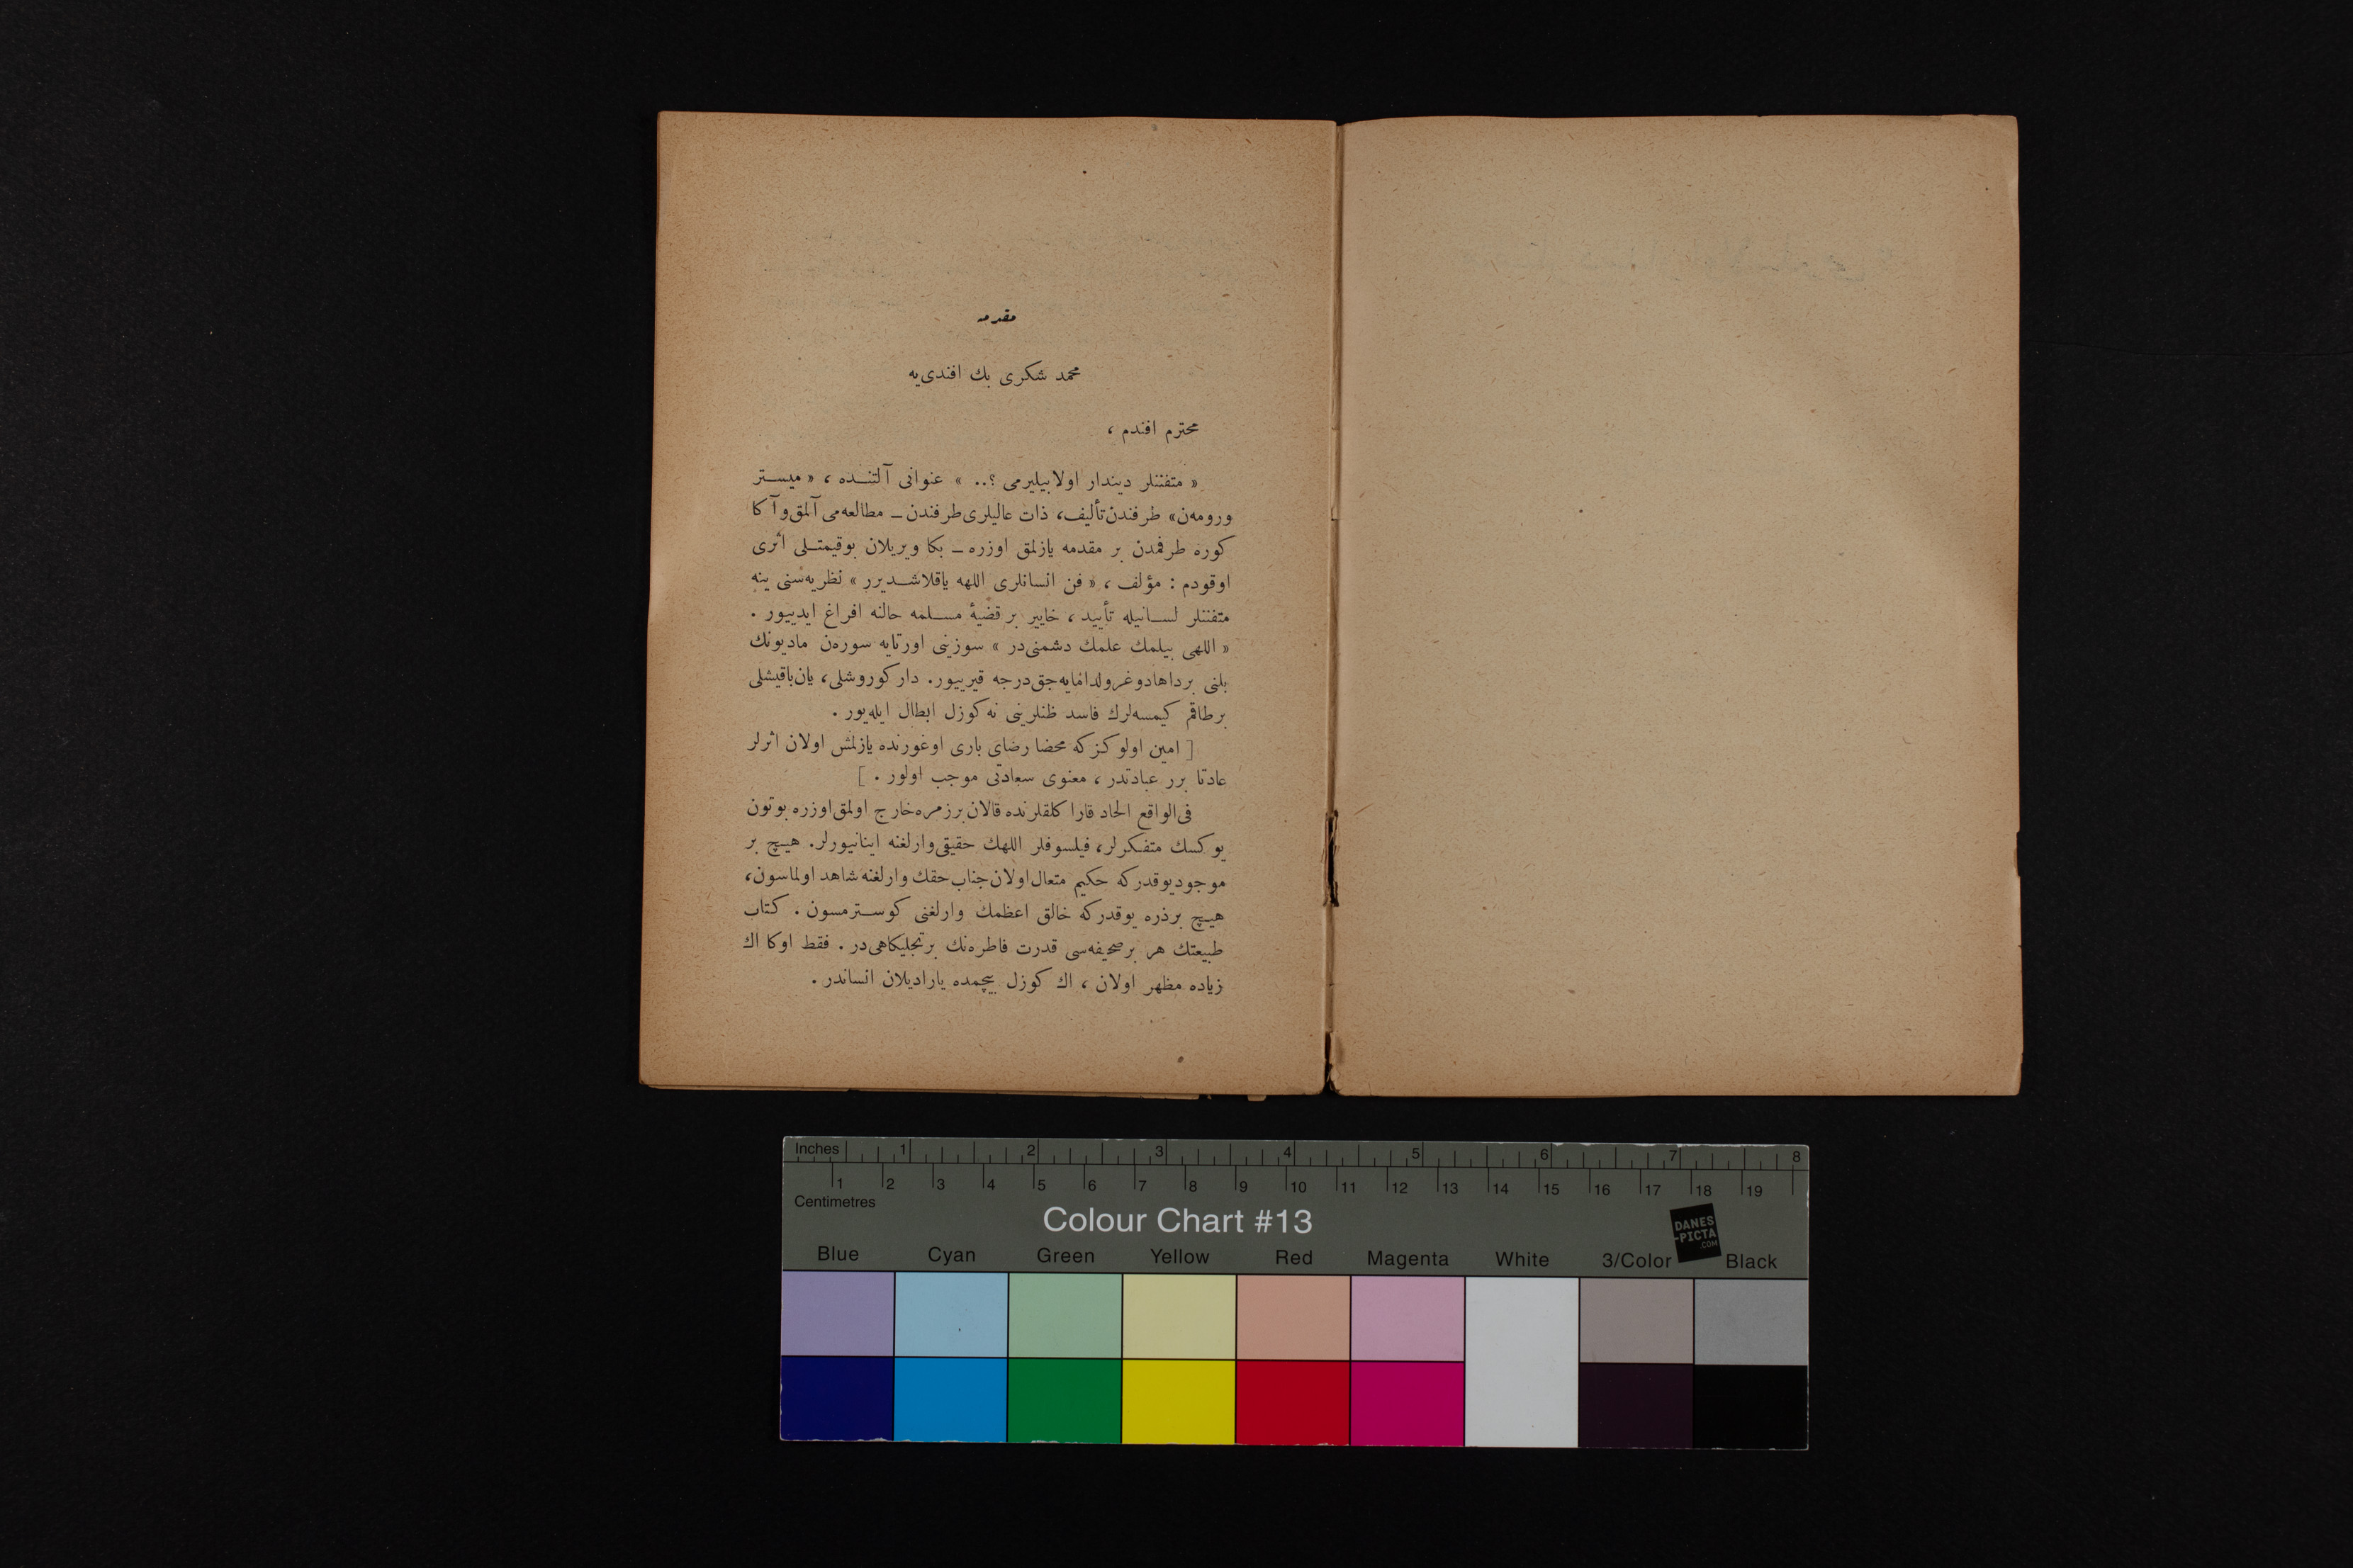 مقدمه
محمد شكری بك افندی‌یه
محترم افندم ،
« متفننلر دیندار اولابیلیرمی ؟.. » عنوانی آلتنـده ، « میسـتر
ورومه‌ن» طرفندن تألیف، ذات عالیلری طرفندن ـ مطالعه‌می آلمق و آ كا
كوره طرفمدن بر مقدمه یازلمق اوزره ـ بكا ویریلان بوقیمتـلی اثری
اوقودم : مؤلف ، « فن انسانلری اللهه یاقلاشـدیرر » نظریه‌سنی ینه
متفننلر لسـانیله تأیید ، خایر بر قضیۀ مسـلمه حالنه افراغ ایدییور .
« اللهی بیلمك علمك دشمنی‌در » سوزینی اورتایه سوره‌ن مادیونك
بلنی برداها دوغرولدامایه‌جق درجه قیرییور. دار كوروشلی، یان باقیشلی
برطاقم كیمسه‌لرك فاسد ظنلرینی نه كوزل ابطال ایله‌یور .
[ امین اولوكزكه محضا رضای باری اوغورنده یازلمش اولان اثرلر
عادتا برر عبادتدر ، معنوی سعادتی موجب اولور . ]
فی‌الواقع الحاد قارا كلقلرنده قالان برزمره خارج اولمق اوزره بوتون
یوكسك متفكرلر، فیلسوفلر اللهك حقیقی وارلغنه اینانیورلر. هیـچ بر
موجود یوقدركه حكیم متعال اولان جناب حقك وارلغنه شاهد اولماسون،
هیـچ برذره یوقدركه خالق اعظمك وارلغنی كوسـترمسون . كتاب
طبیعتك هر برصحیفه‌سی قدرت فاطره‌نك برتجلیكاهی‌در . فقط اوكا اك
زیاده مظهر اولان ، اك كوزل بیچمده یارادیلان انساندر .
Inches 1 2 3 4 5 6 7 8
1 2 3 4 5 6 7 8 9 10 11 12 13 14 15 16 17 18 19
Centimetres
Colour Chart #13
DANES
-PICTA
.COM
Blue Cyan Green Yellow Red Magenta White 3/Color Black